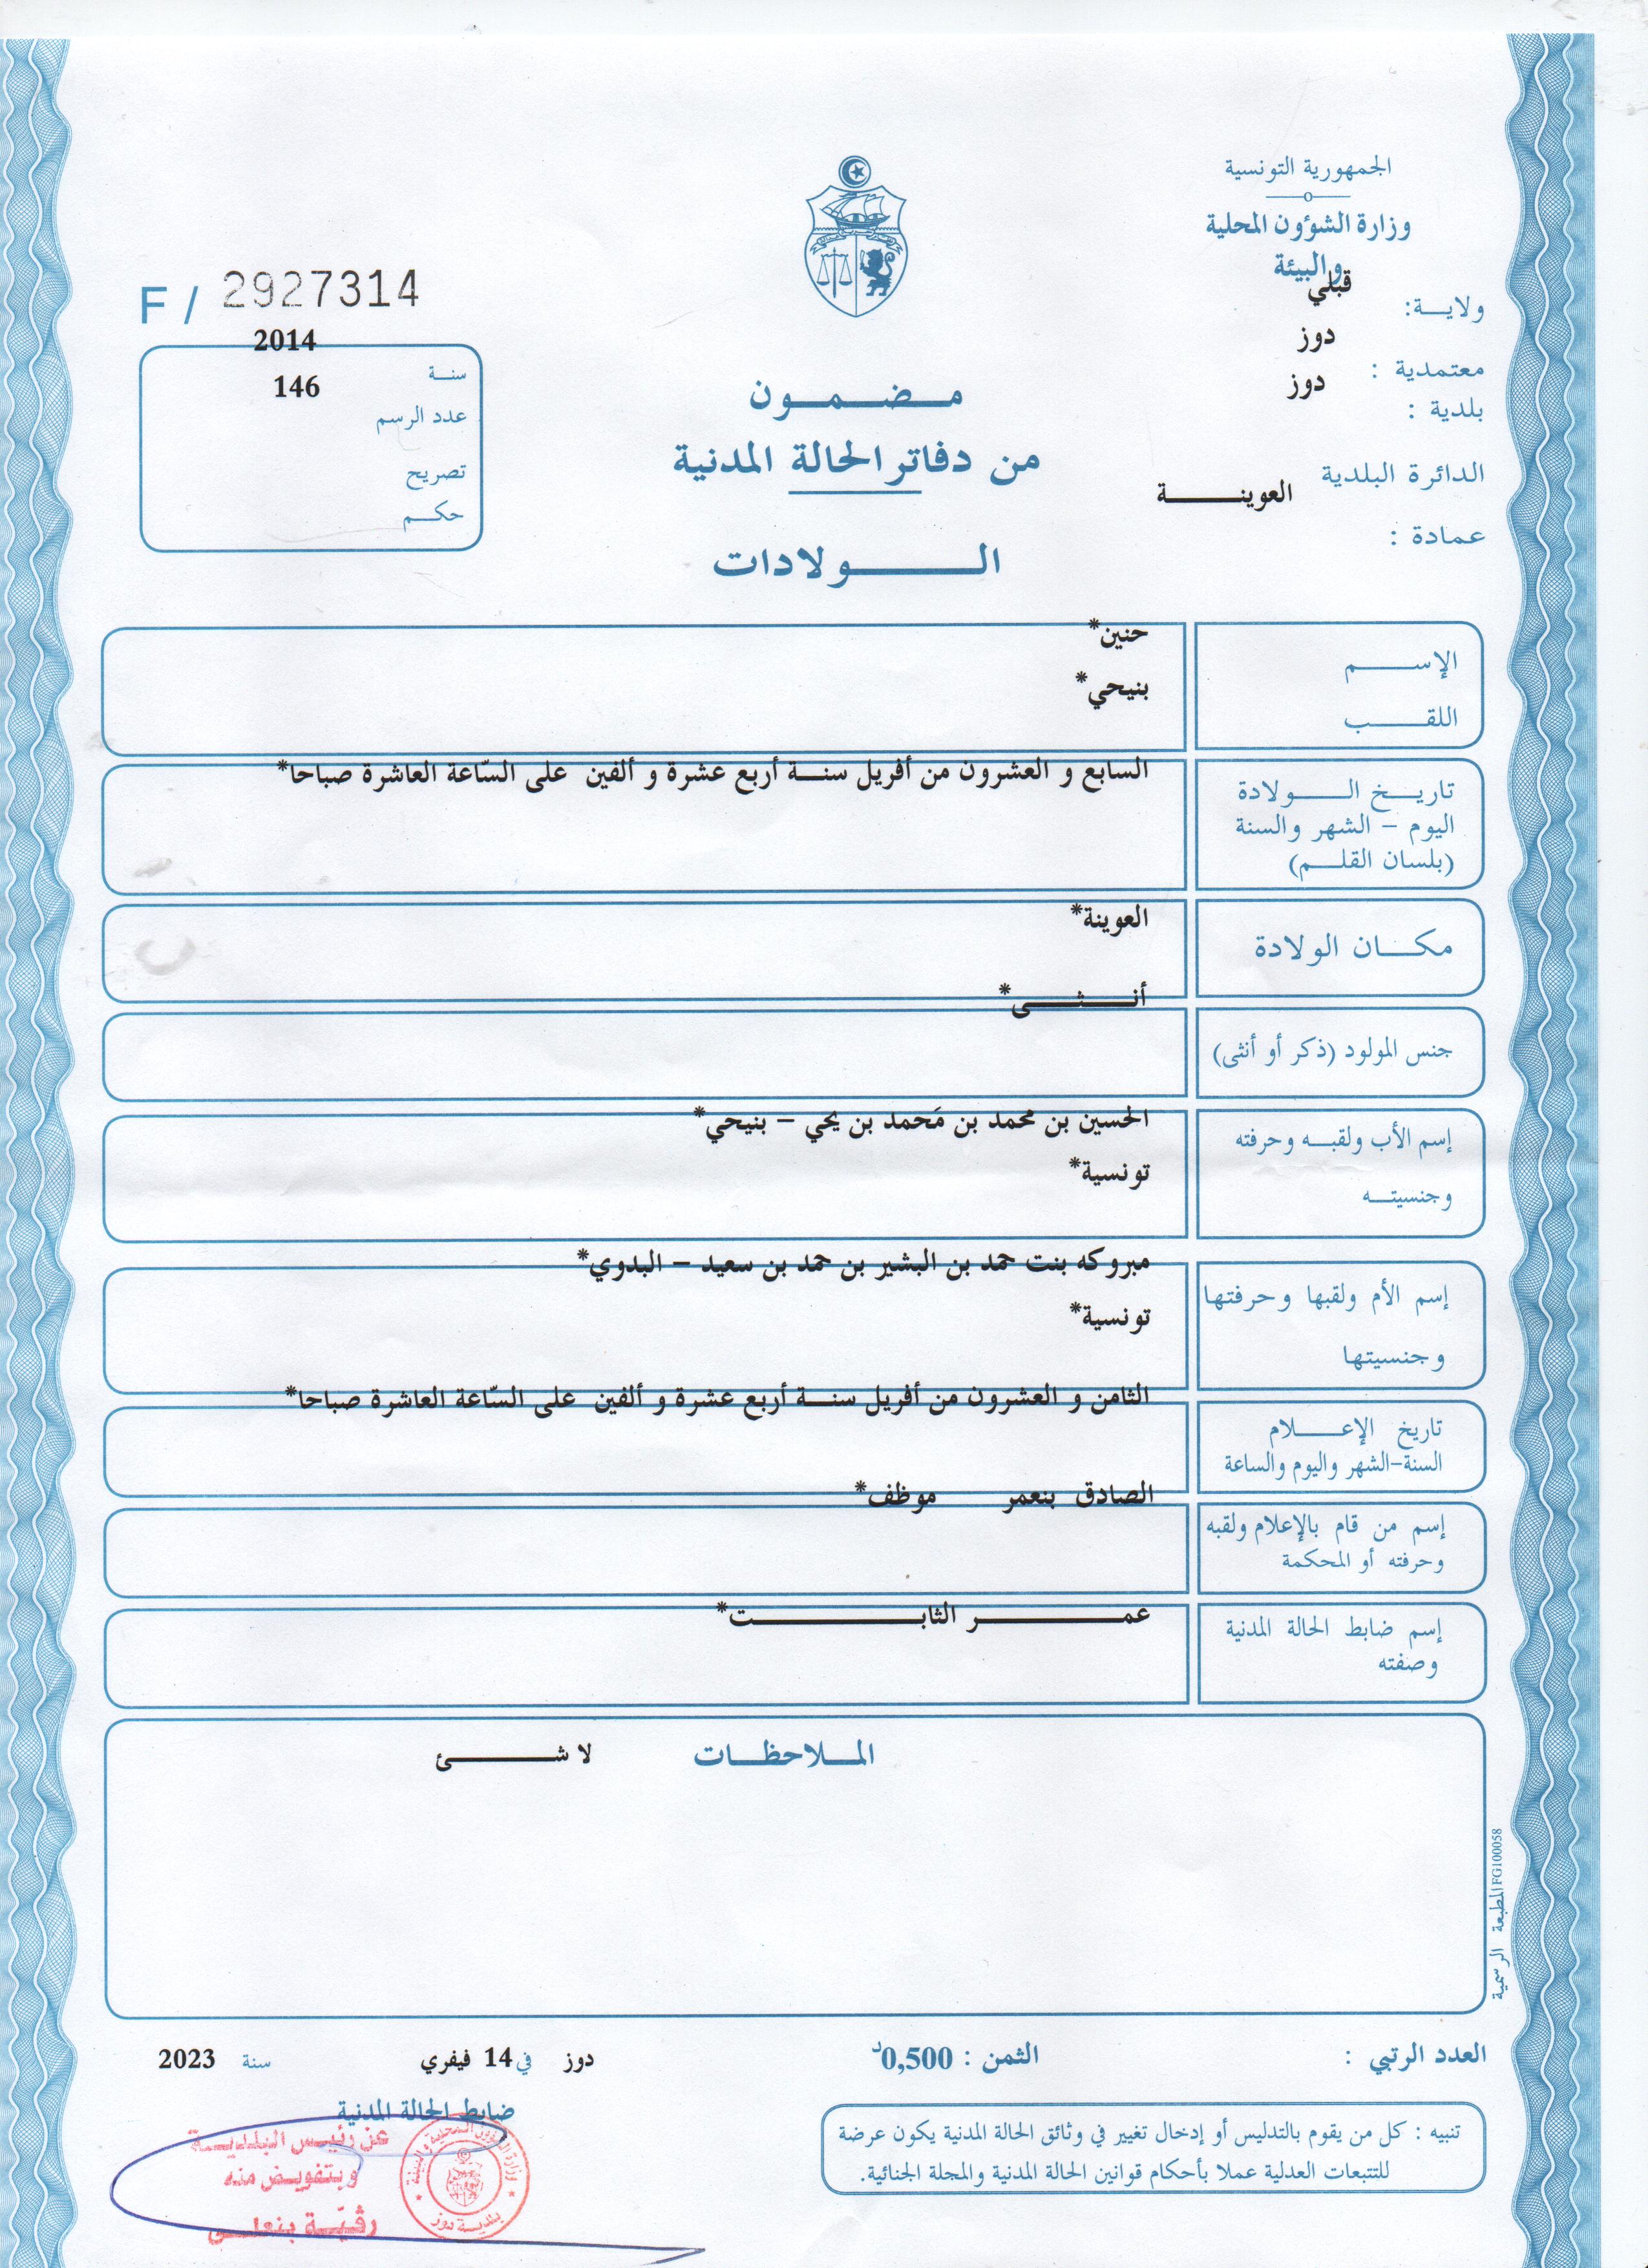 الجمهورية التونسية
وزارة الشؤون المحلية
والبيئة
ولاية: قبلي
معتمدية : دوز
بلدية : دوز
الدائرة البلدية
العوينة
عمادة :
F / 2927314
سنة 2014
عدد الرسم 146
تصريح
حكم
مضمون
من دفاتر الحالة المدنية
الولادات
الإسم حنين*
اللقب بنيحي*
تاريخ الولادة
اليوم – الشهر والسنة
(بلسان القلم)
السابع و العشرون من أفريل سنة أربع عشرة و ألفين على السّاعة العاشرة صباحا*
مكان الولادة
العوينة*
جنس المولود (ذكر أو أنثى)
أنثى*
إسم الأب ولقبه وحرفته
وجنسيته
الحسين بن محمد بن مَحمد بن يحي – بنيحي*
تونسية*
إسم الأم ولقبها وحرفتها
وجنسيتها
مبروكه بنت حمد بن البشير بن حمد بن سعيد – البدوي*
تونسية*
تاريخ الإعلام
السنة-الشهر واليوم والساعة
الثامن و العشرون من أفريل سنة أربع عشرة و ألفين على السّاعة العاشرة صباحا*
إسم من قام بالإعلام ولقبه
وحرفته أو المحكمة
الصادق بنعمر موظف*
إسم ضابط الحالة المدنية
وصفته
عمر الثابت*
الملاحظات لا شئ
المطبعة الرسمية FG100058
العدد الرتبي :
الثمن : 0,500د
دوز في 14 فيفري سنة 2023
ضابط الحالة المدنية
عن رئيس البلدية
وبتفويض منه
رقيّة بنعلي
وزارة الشؤون المحلية والبيئة
بلدية دوز
تنبيه : كل من يقوم بالتدليس أو إدخال تغيير في وثائق الحالة المدنية يكون عرضة
للتتبعات العدلية عملا بأحكام قوانين الحالة المدنية والمجلة الجنائية.